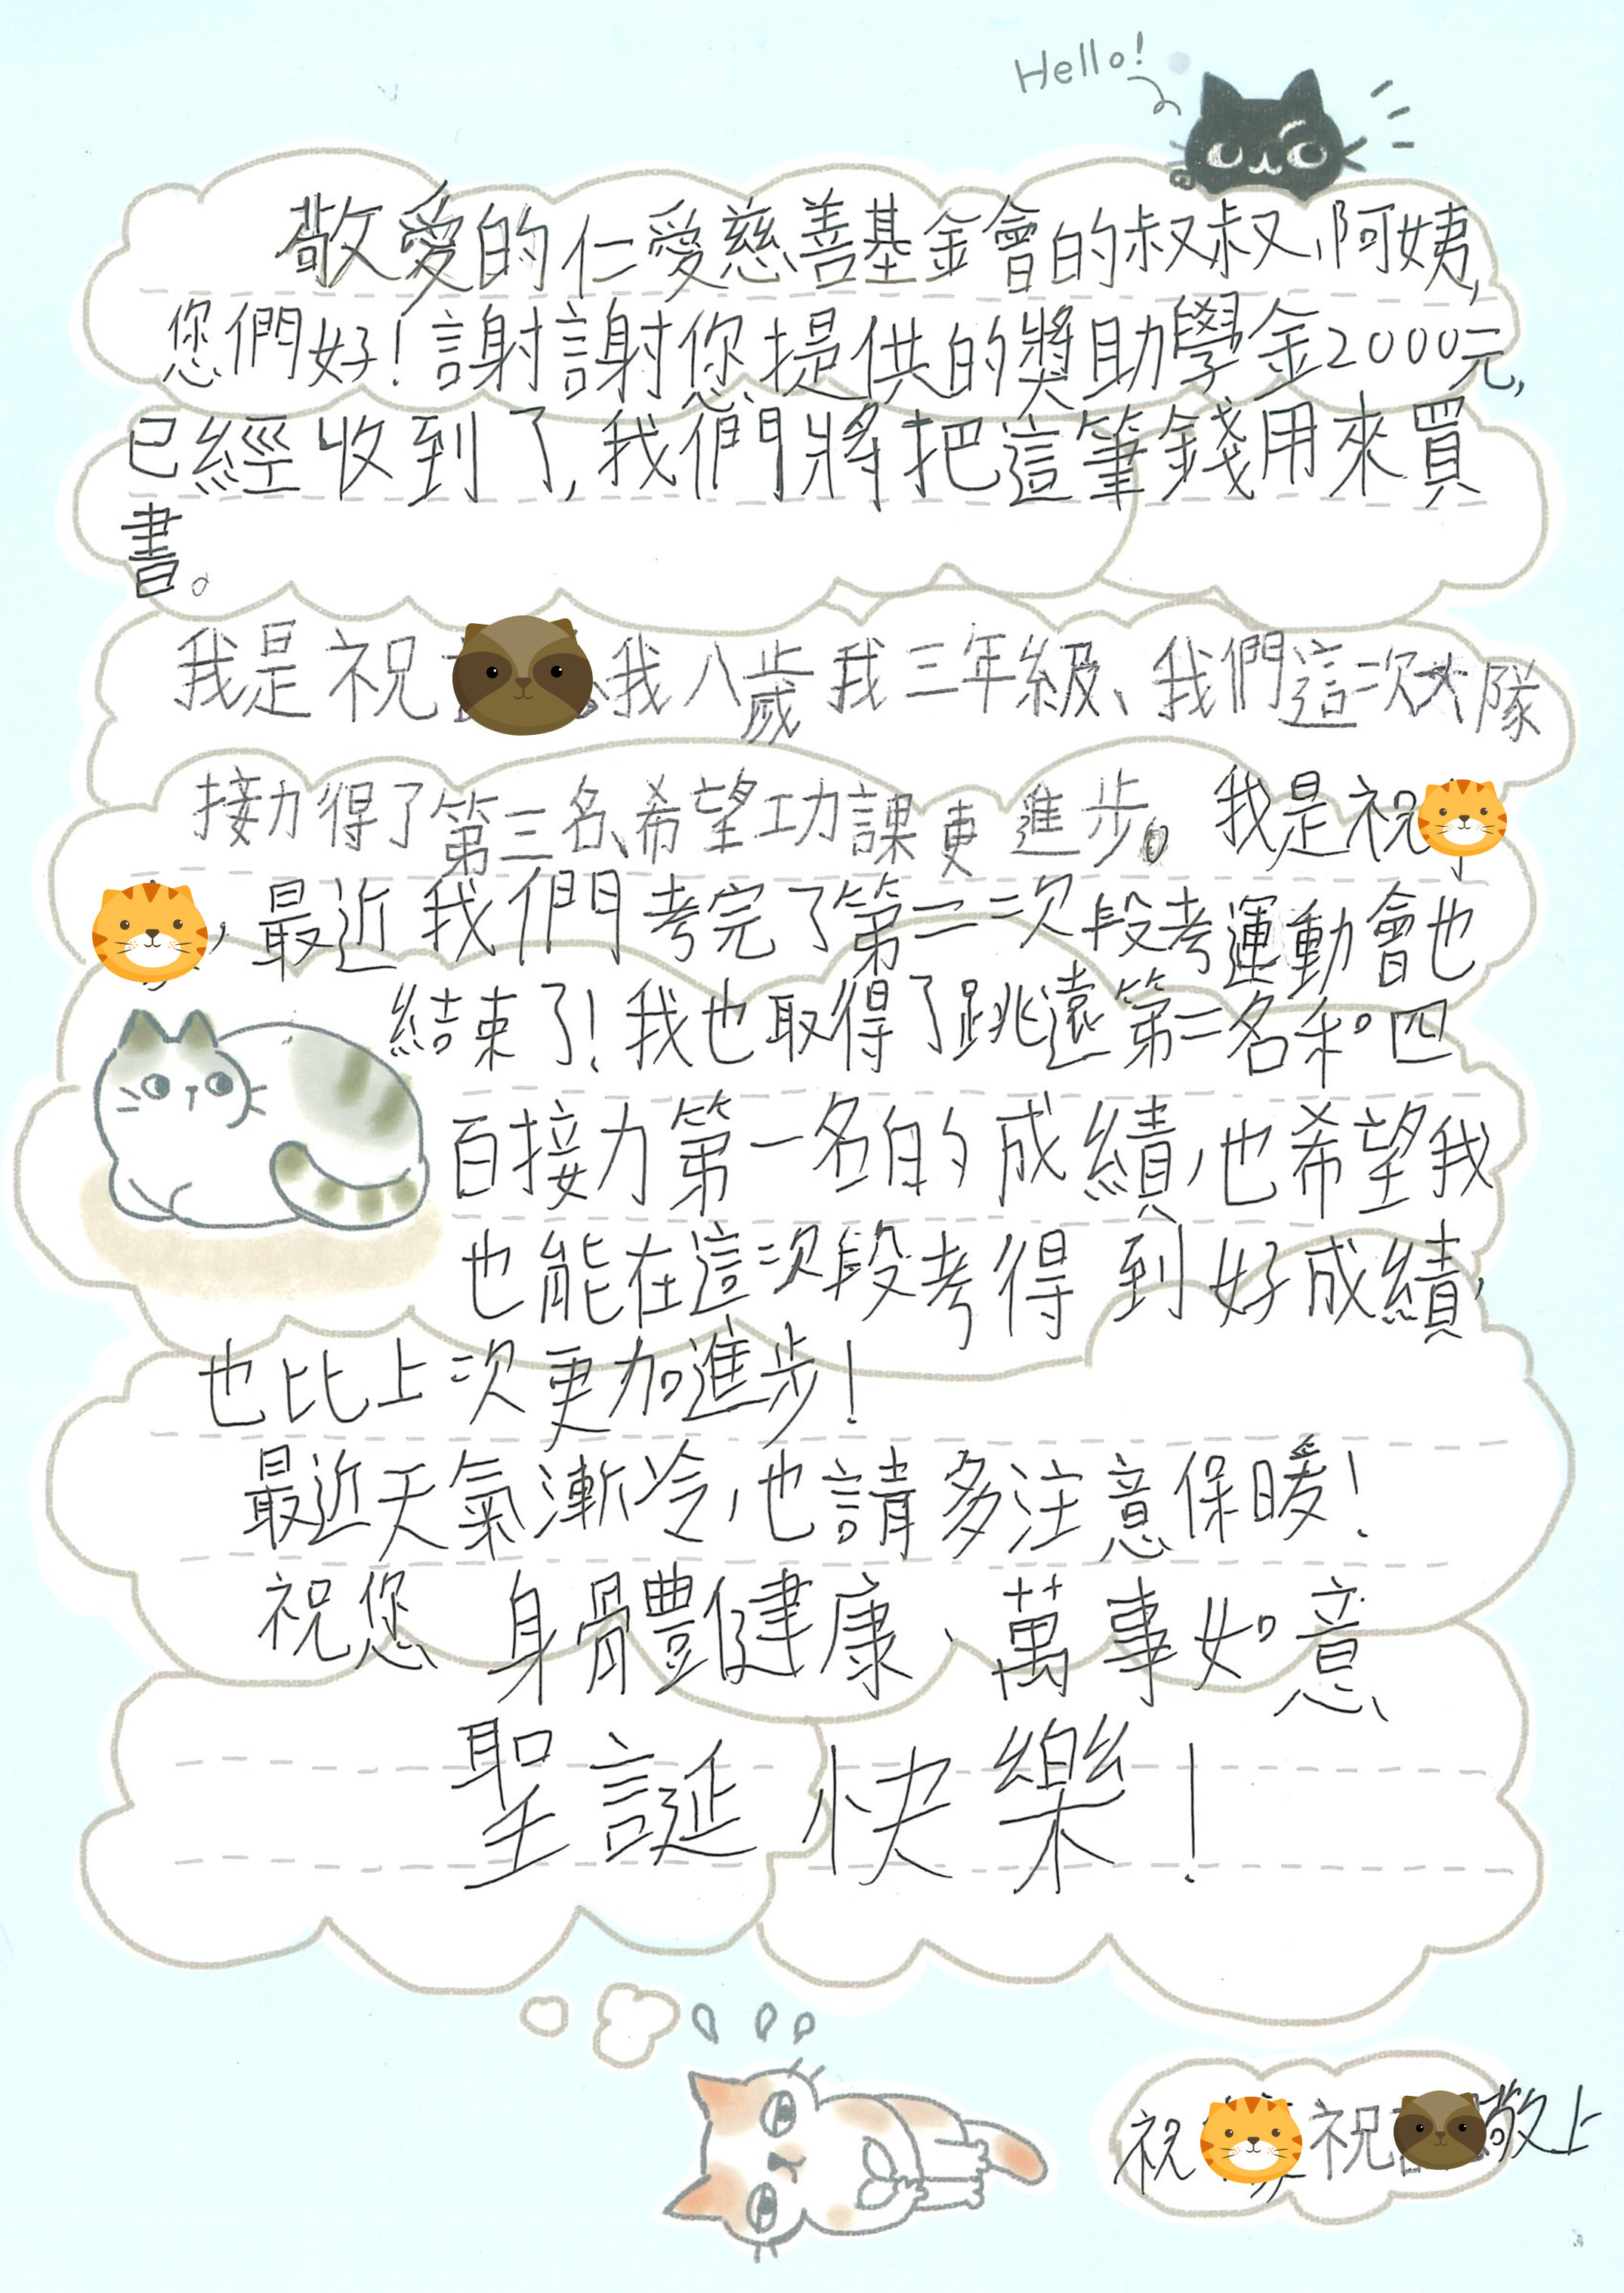 Hello!
敬愛的仁愛慈善基金會的叔叔、阿姨,
您們好!謝謝您提供的獎助學金2000元,
已經收到了,我們將把這筆錢用來買
書。
我是祝 我八歲我三年級、我們這次大隊
接力得了第三名、希望功課更進步。我是祝
,最近我們考完了第二次段考運動會也
結束了!我也取得了跳遠第二名和四
百接力第一名的成績,也希望我
也能在這次段考得到好成績,
也比上次更加進步!
最近天氣漸冷,也請多注意保暖!
祝您 身體健康、萬事如意
聖誕快樂!
祝 祝 敬上